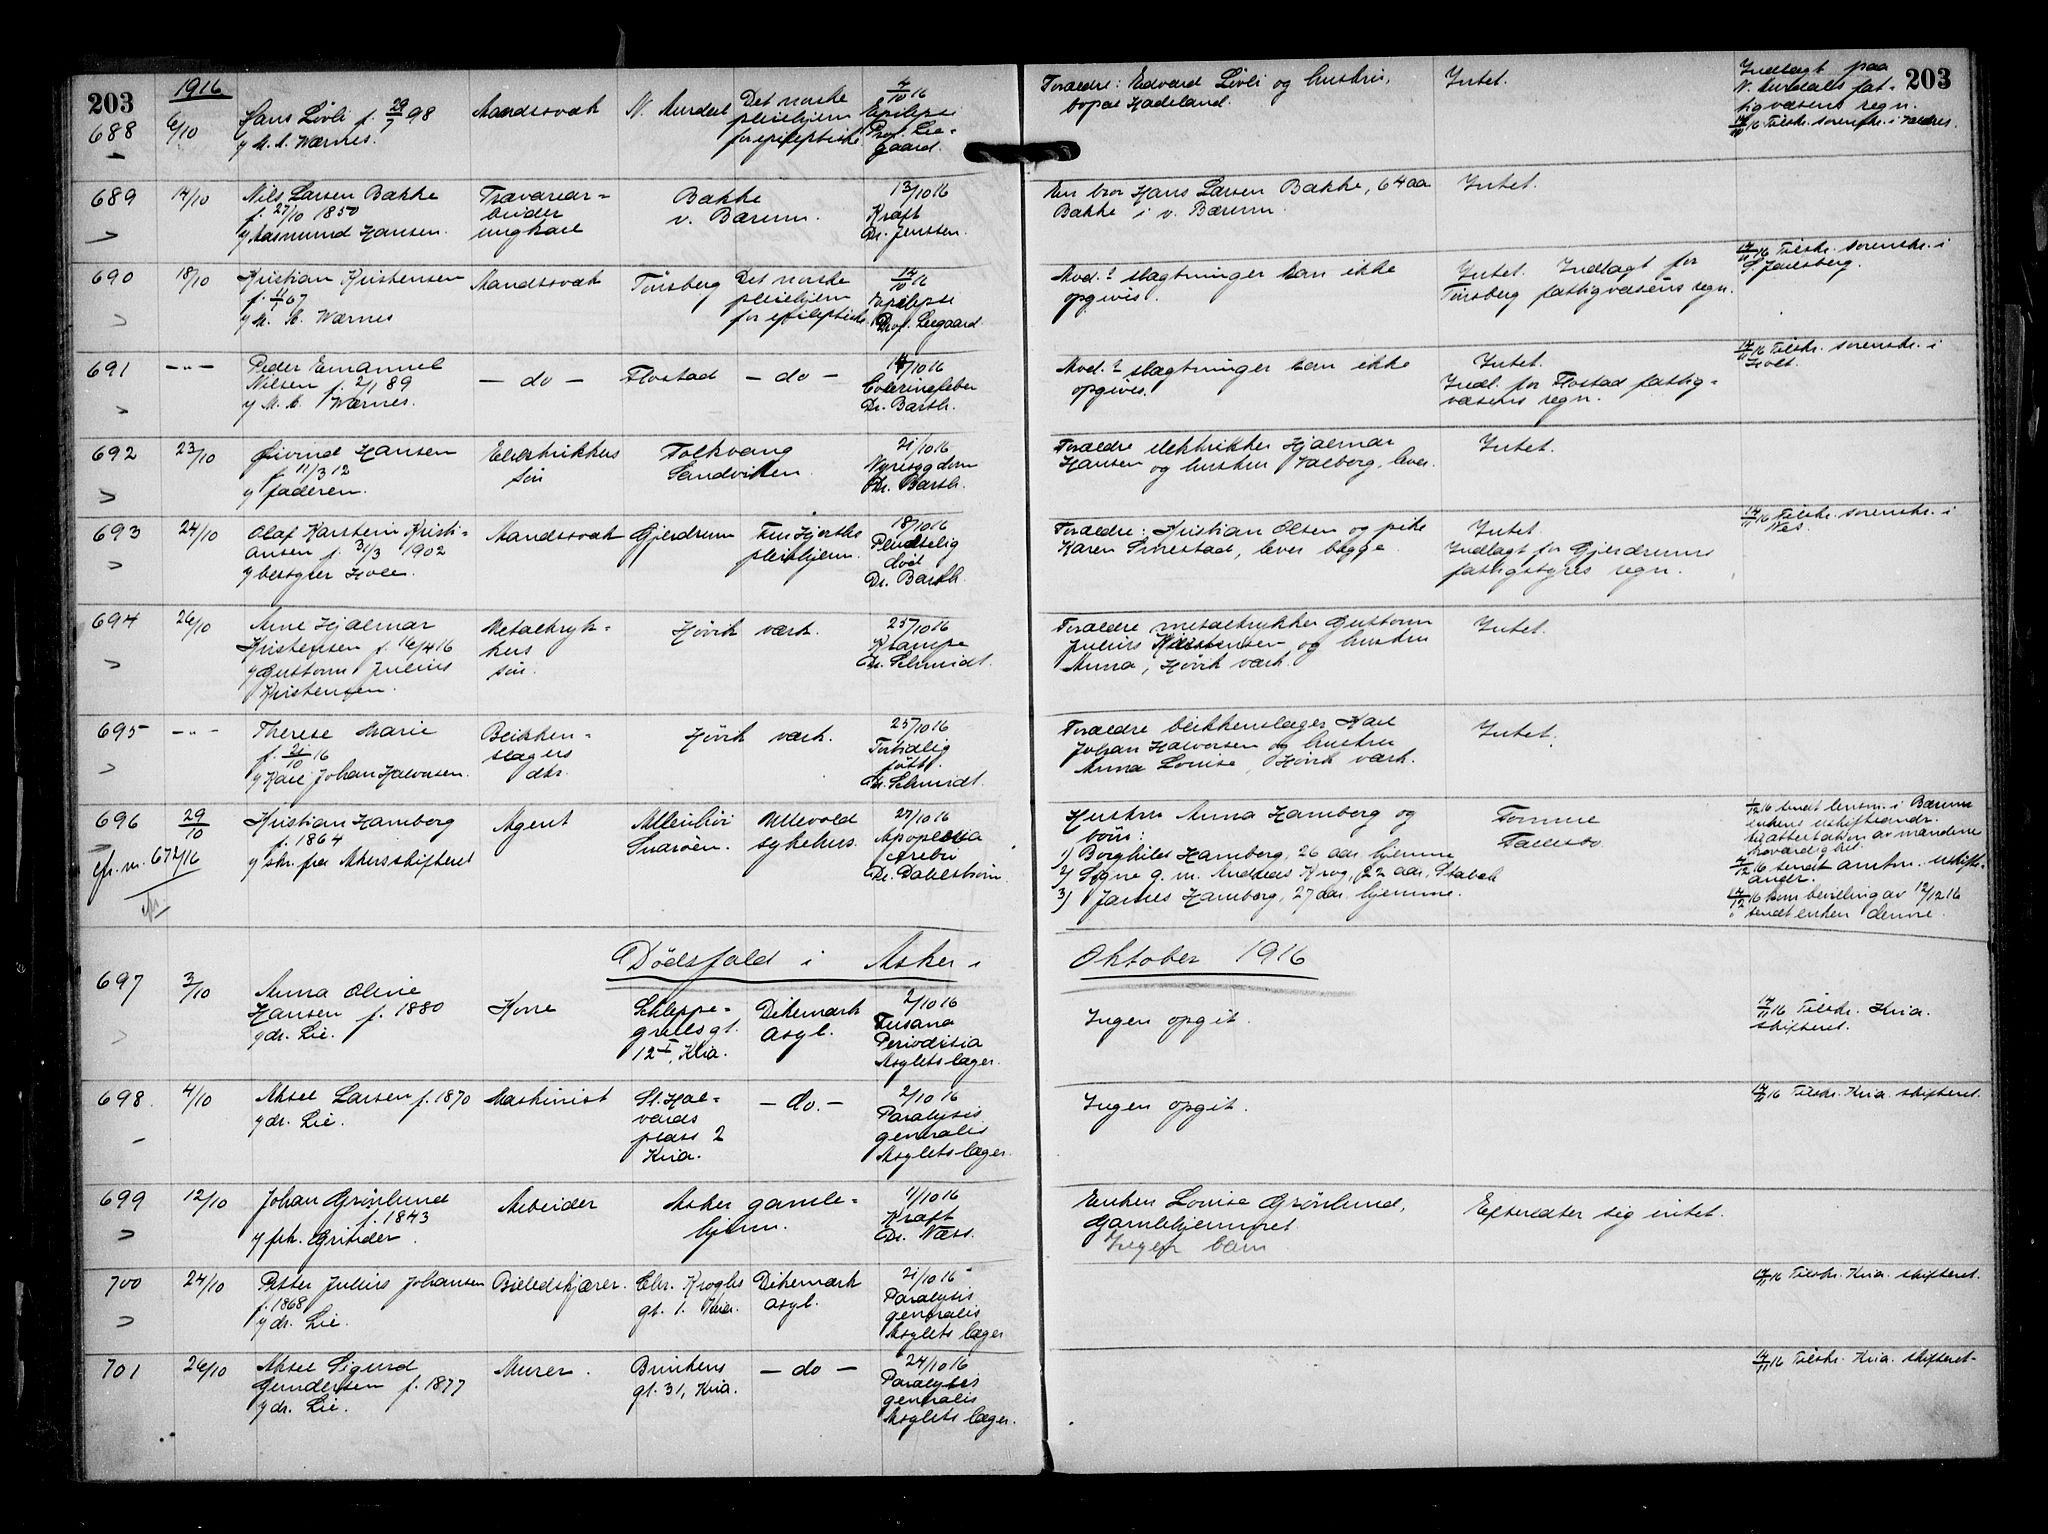 203
1916
203
688
6/10
Hans Lövli f. 29/7 98
y M. A. Wærnes.
Aandssvak
N. Aurdal
Det norske
pleiehjem
for epileptiske
4/10 16
Epilepsi
Prof. Lee-
gaard.
Foræeldre: Edvard Lövli og hustru,
bopæl Hadeland.
Intet.
Indlagt paa
N. Aurdals fat-
tigvæsens regn.
14/11 16 Tilskr. sorenskr. i Valdres.
689
14/10
Nils Larsen Bakke
f. 27/10 1850
y Aasmund Hansen.
Trævarear-
beider
ungkarl
Bakke
v. Bærum.
13/10 16
Kræft
Dr. Jenssen.
En bror Hans Larsen Bakke, 64 aar
Bakke i v. Bærum.
Intet.
690
18/10
Kristian Kristensen
f. 4/1 67
y M. A. Wærnes
Aandssvak
Tönsberg
Det norske
pleiehjem
for epileptiske
14/10 16
Epilepsi
Prof. Leegaard.
Mod.? slægtninger kan ikke
opgives.
Intet. Indlagt for
Tönsberg fattigvæsens regn.
14/11 16 Tilskr. sorenskr. i
S. Jarlsberg.
691
-"-
Peder Emanuel
Nilsen f. 2/1 89
y M. A. Wærnes.
- do -
Flostad
- do -
14/10 16
Dr. Barth.
Mod.? slægtninger kan ikke
opgives.
Intet.
Indl. for Flostad fattig-
væsens regn.
14/11 16 Tilskr. sorenskr. i
Holt.
692
23/10
Öivind Hansen
f. 11/3 12
y faderen.
Elektrikkers
sön
Folkvang
Sandviken
21/10 16
Nyresygdom
Dr. Barth.
Foræeldre elektrikker Hjalmar
Hansen og hustru Valborg, lever.
Intet.
693
24/10
Olaf Karstein Kristi-
ansen f. 31/3 1902
y bestyrer Hole.
Aandssvak
Gjerdrum
Fru Hjorths
pleiehjem.
18/10 16
Pludselig
död
Dr. Barth.
Foræeldre: Kristian Olsen og pike
Karen Smestad, lever begge.
Intet
Indlagt for Gjerdrums
fattigstyres regn.
14/11 16 Tilskr. sorenskr. i
Nes.
694
26/10
Arne Hjalmar
Kristensen f. 16/4 16
y Gustav Julius
Kristensen.
Metaltryk-
kers
sön.
Hövik værk.
25/10 16
Krampe
Dr. Schmidt.
Foræeldre metaltrykker Gustav
Julius Kristensen og hustru
Anna, Hövik værk.
Intet.
695
-"-
Therese Marie
f. 21/10 16
y Karl Johan Halvorsen.
Blikken-
slagers
dtr.
Hövik værk.
25/10 16
Fortidlig
födt.
Dr. Schmidt.
Foræeldre blikkenslager Karl
Johan Halvorsen og hustru
Anna Louise, Hövik værk.
Intet.
696
29/10
cfr. nr. 672/16
cfr.
Kristian Hamborg
f. 1864
y skr. fra Akersskifteret
Agent
Snarøen.
Ullevold
sykehus.
27/10 16
Apoplexia
cerebri
Dr. Dahlström.
Hustru Anna Hamborg og
börn:
1) Borghild Hamborg, 26 aar, hjemme
2) Signe g. m. Andreas Krog, 22 aar, Stabæk
3) James Hamborg, 27 aar, hjemme.
Formue
Fællesbo
1/12 16 sendt lensm. i Bærum
enkens uskifteandr.
til attestation av mandens
4/12 16 sendt amtm. uskifte-
andr.
14/12 16 kom bevilling av 12/12 16
sendt enken denne.
Dödsfald i Asker i Oktober 1916
697
3/10
Anna Oline
Hansen f. 1880
y dr. Lie.
Kone
Schleppe-
grellsgt.
12 I, Kria.
Dikemark
asyl.
2/10 16
Periodisia
Asylets læger.
Ingen opgit.
14/11 16 Tilskr. Kria.
skifteret.
698.
4/10
Aksel Larsen f. 1870
y dr. Lie.
Maskinist
St. Hal-
vards
plass 2
Kria.
- do. -
2/10 16
Paralysis
generalis
Asylets læger.
Ingen opgit.
14/11 16 Tilskr. Kria. skifteret.
699
12/10
Johan Grönlund
f. 1843
y frk. Gritider.
Arbeider
Asker gamle-
hjem.
11/10 16
Kræft
Dr. Næss.
Enken Louise Grönlund,
Gamlehjemmet
Ingen barn
Efterlater sig intet.
700
24/10
Peter Julius Johansen
f. 1868
y dr. Lie.
Billedskjærer.
Chr. Kroghs
gt. 1. Kria.
Dikemark
asyl.
21/10 16
Paralysis
generalis
Asylets læger
14/11 16 Tilskr. Kria. skifteret.
701
26/10
Aksel Sigurd
Gundersen f. 1877
y dr. Lie.
Murer.
Brinkens
gt. 31, Kria.
- do -
24/10 16
Paralysis
generalis
Asylets læger.
14/11 16 Tilskr. Kria. skifteret.